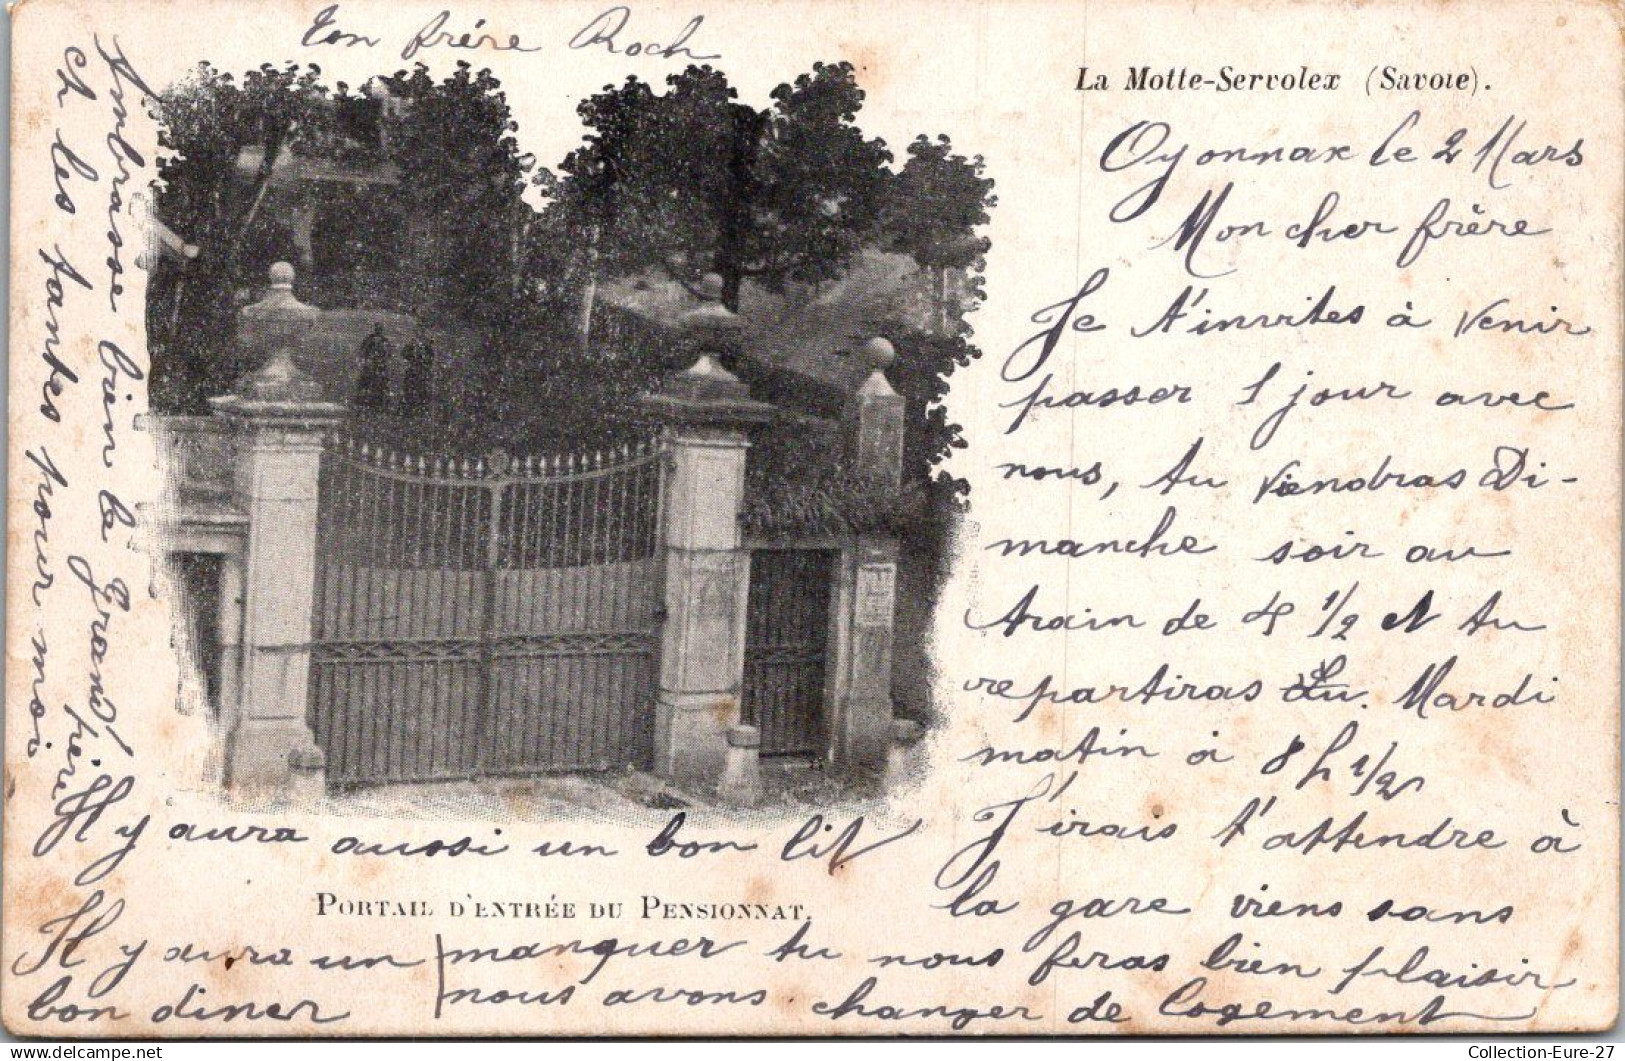 La Motte-Servolex (Savoie).
Oyonnax le 2 Mars
Mon cher frère
Je t'invites à venir
passer 1 jour avec
nous, tu viendras Di-
manche soir au
train de 4 1/2 et tu
repartiras Lu. Mardi
matin à 8 h 1/2
J'irais t'attendre à
la gare viens sans
manquer tu nous feras bien plaisir
nous avons changer de logement
Il y aura un
bon diner
Il y aura aussi un bon lit
Ambrasse bien le Grand père
ch les tantes pour moi
Ton frère Roch
PORTAIL D'ENTRÉE DU PENSIONNAT.
Collection-Eure-27